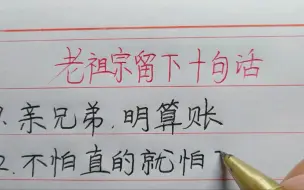 老祖宗留下十句话
1.亲兄弟.明算账
2.不怕直的就怕